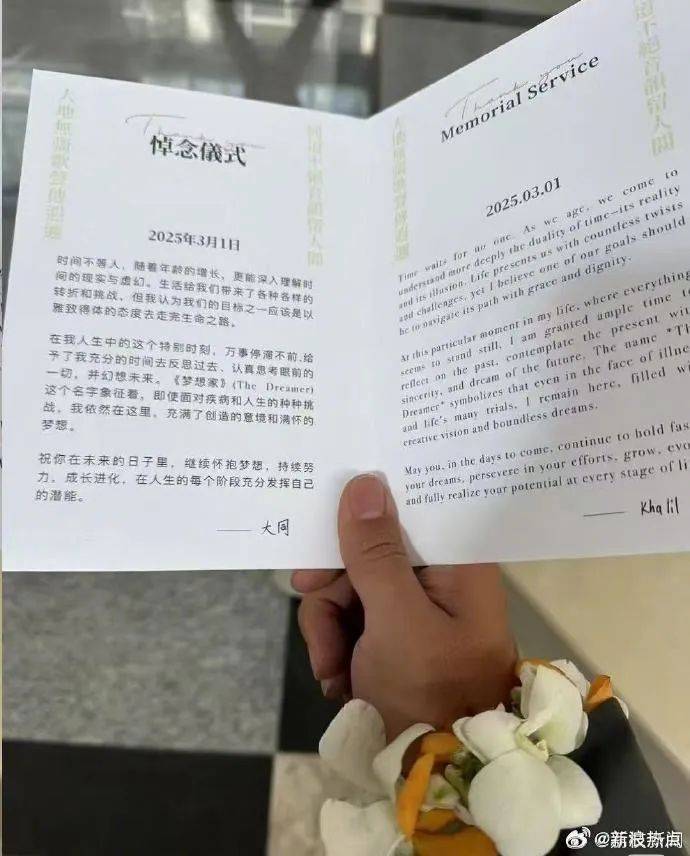 Thank you
悼念儀式
2025年3月1日
时间不等人，随着年龄的增长，更能深入理解时
间的现实与虚幻。生活给我们带来了各种各样的
转折和挑战，但我认为我们的目标之一应该是以
雅致得体的态度去走完生命之路。
在我人生中的这个特别时刻，万事停滞不前，给
予了我充分的时间去反思过去、认真思考眼前的
一切，并幻想未来。《梦想家》(The Dreamer)
这个名字象征着，即使面对疾病和人生的种种挑
战，我依然在这里，充满了创造的意境和满怀的
梦想。
祝你在未来的日子里，继续怀抱梦想，持续努
力，成长进化，在人生的每个阶段充分发挥自己
的潜能。
—— 大同
Thank you
Memorial Service
2025.03.01
Time waits for no one. As we age, we come to
understand more deeply the duality of time—its reality
and its illusion. Life presents us with countless twists
and challenges, yet I believe one of our goals should
be to navigate its path with grace and dignity.
At this particular moment in my life, where everything
seems to stand still, I am granted ample time to
reflect on the past, contemplate the present wit
sincerity, and dream of the future. The name "Th
Dreamer" symbolizes that even in the face of illne
and life's many trials, I remain here, filled wi
creative vision and boundless dreams.
May you, in the days to come, continue to hold fas
your dreams, persevere in your efforts, grow, evo
and fully realize your potential at every stage of li
—— Khalil
@新浪新闻